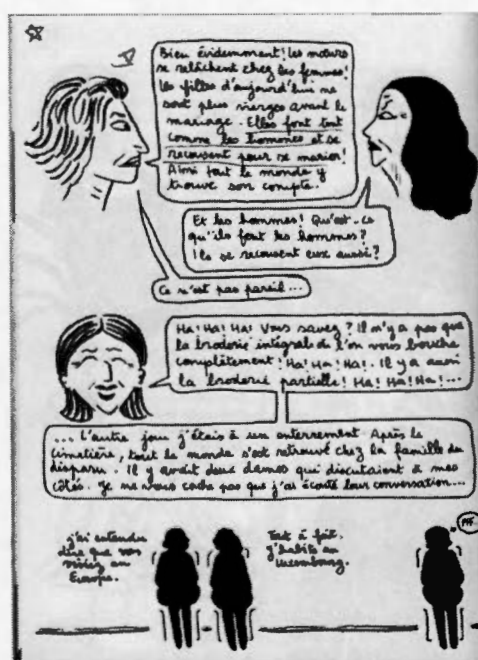 Bien évidemment! Les mœurs
se relâchent chez les femmes!
Les filles d'aujourd'hui ne
sont plus vierges avant le
mariage. Elles font tout
comme les hommes et se
recousent pour se marier!
Ainsi tout le monde y
trouve son compte.
Et les hommes! Qu'est-ce
qu'ils font les hommes?
Ils se recousent eux aussi?
Ce n'est pas pareil...
Ha! Ha! Ha! Vous savez? Il n'y a pas que
la broderie intégrale où l'on vous bouche
complètement! Ha! Ha! Ha!. Il y a aussi
la broderie partielle! Ha! Ha! Ha!...
... L'autre jour j'étais à un enterrement. Après le
cimetière, tout le monde s'est retrouvé chez la famille du
disparu. Il y avait deux dames qui discutaient à mes
côtés. Je ne vous cache pas que j'ai écouté leur conversation...
j'ai entendu
dire que vous
viviez en
Europe.
Tout à fait.
J'habite au
Luxembourg.
PFF